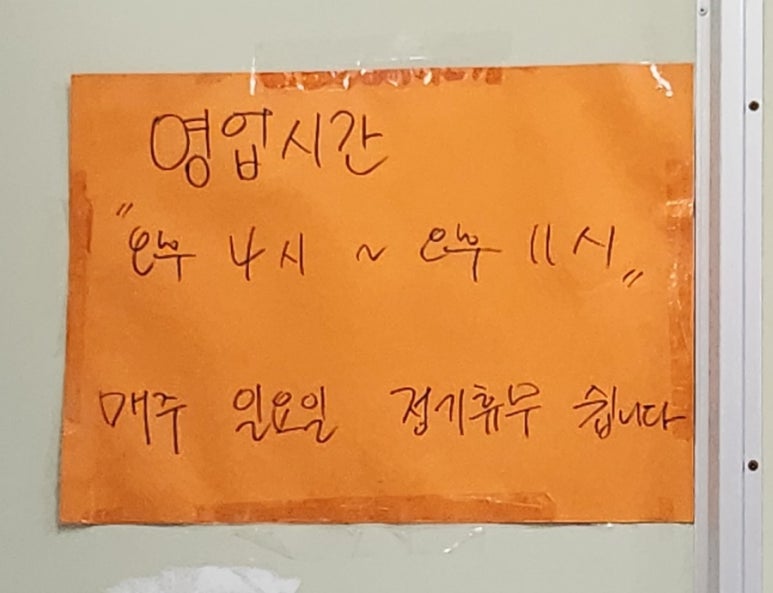 영업시간
"오후 4시 ~ 오후 11시"
매주 일요일 정기휴무 쉽니다